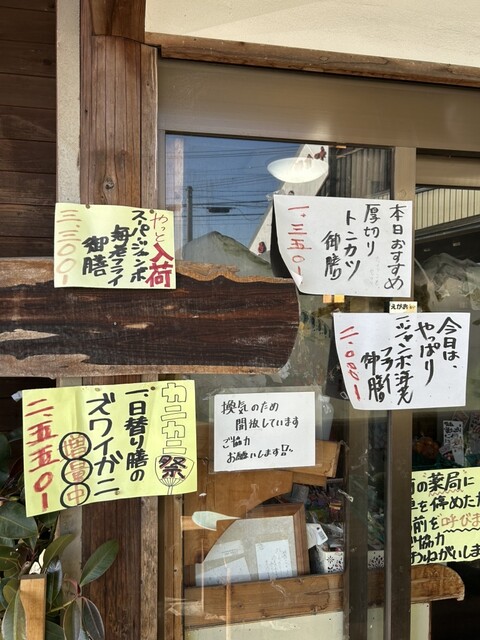 やっと入荷
スーパージャンボ
海老フライ
御膳
三、三〇〇-
本日おすすめ
厚切り
トンカツ
御膳
一、三五〇-
えがお
今日は、
やっぱり
ジャンボ海老
フライ
御膳
二、〇〇〇-
カニカニ祭
一、日替り膳の
ズワイガニ
増量中
二、五五〇-
換気のため
開放しています
ご協力
お願いします
の薬局に
車を停めた
前を呼びま
ご協力
おねがいしま